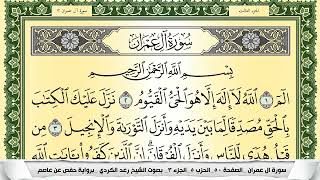 الجزء الثالث
سورة آل عمران ٣
سُورَةُ آلِ عِمْرَان
بِسْمِ ٱللَّهِ ٱلرَّحْمَٰنِ ٱلرَّحِيمِ
الٓمٓ ١ ٱللَّهُ لَآ إِلَٰهَ إِلَّا هُوَ ٱلْحَىُّ ٱلْقَيُّومُ ٢ نَزَّلَ عَلَيْكَ ٱلْكِتَٰبَ
بِٱلْحَقِّ مُصَدِّقًا لِّمَا بَيْنَ يَدَيْهِ وَأَنزَلَ ٱلتَّوْرَىٰةَ وَٱلْإِنجِيلَ ٣
مِن قَبْلُ هُدًى لِّلنَّاسِ وَأَنزَلَ ٱلْفُرْقَانَ إِنَّ ٱلَّذِينَ كَفَرُوا۟ بِـَٔايَٰتِ ٱللَّهِ
سورة آل عمران . الصفحة ٥٠ . الحزب ٥ . الجزء ٣ . بصوت الشيخ رعد الكردي . برواية حفص عن عاصم